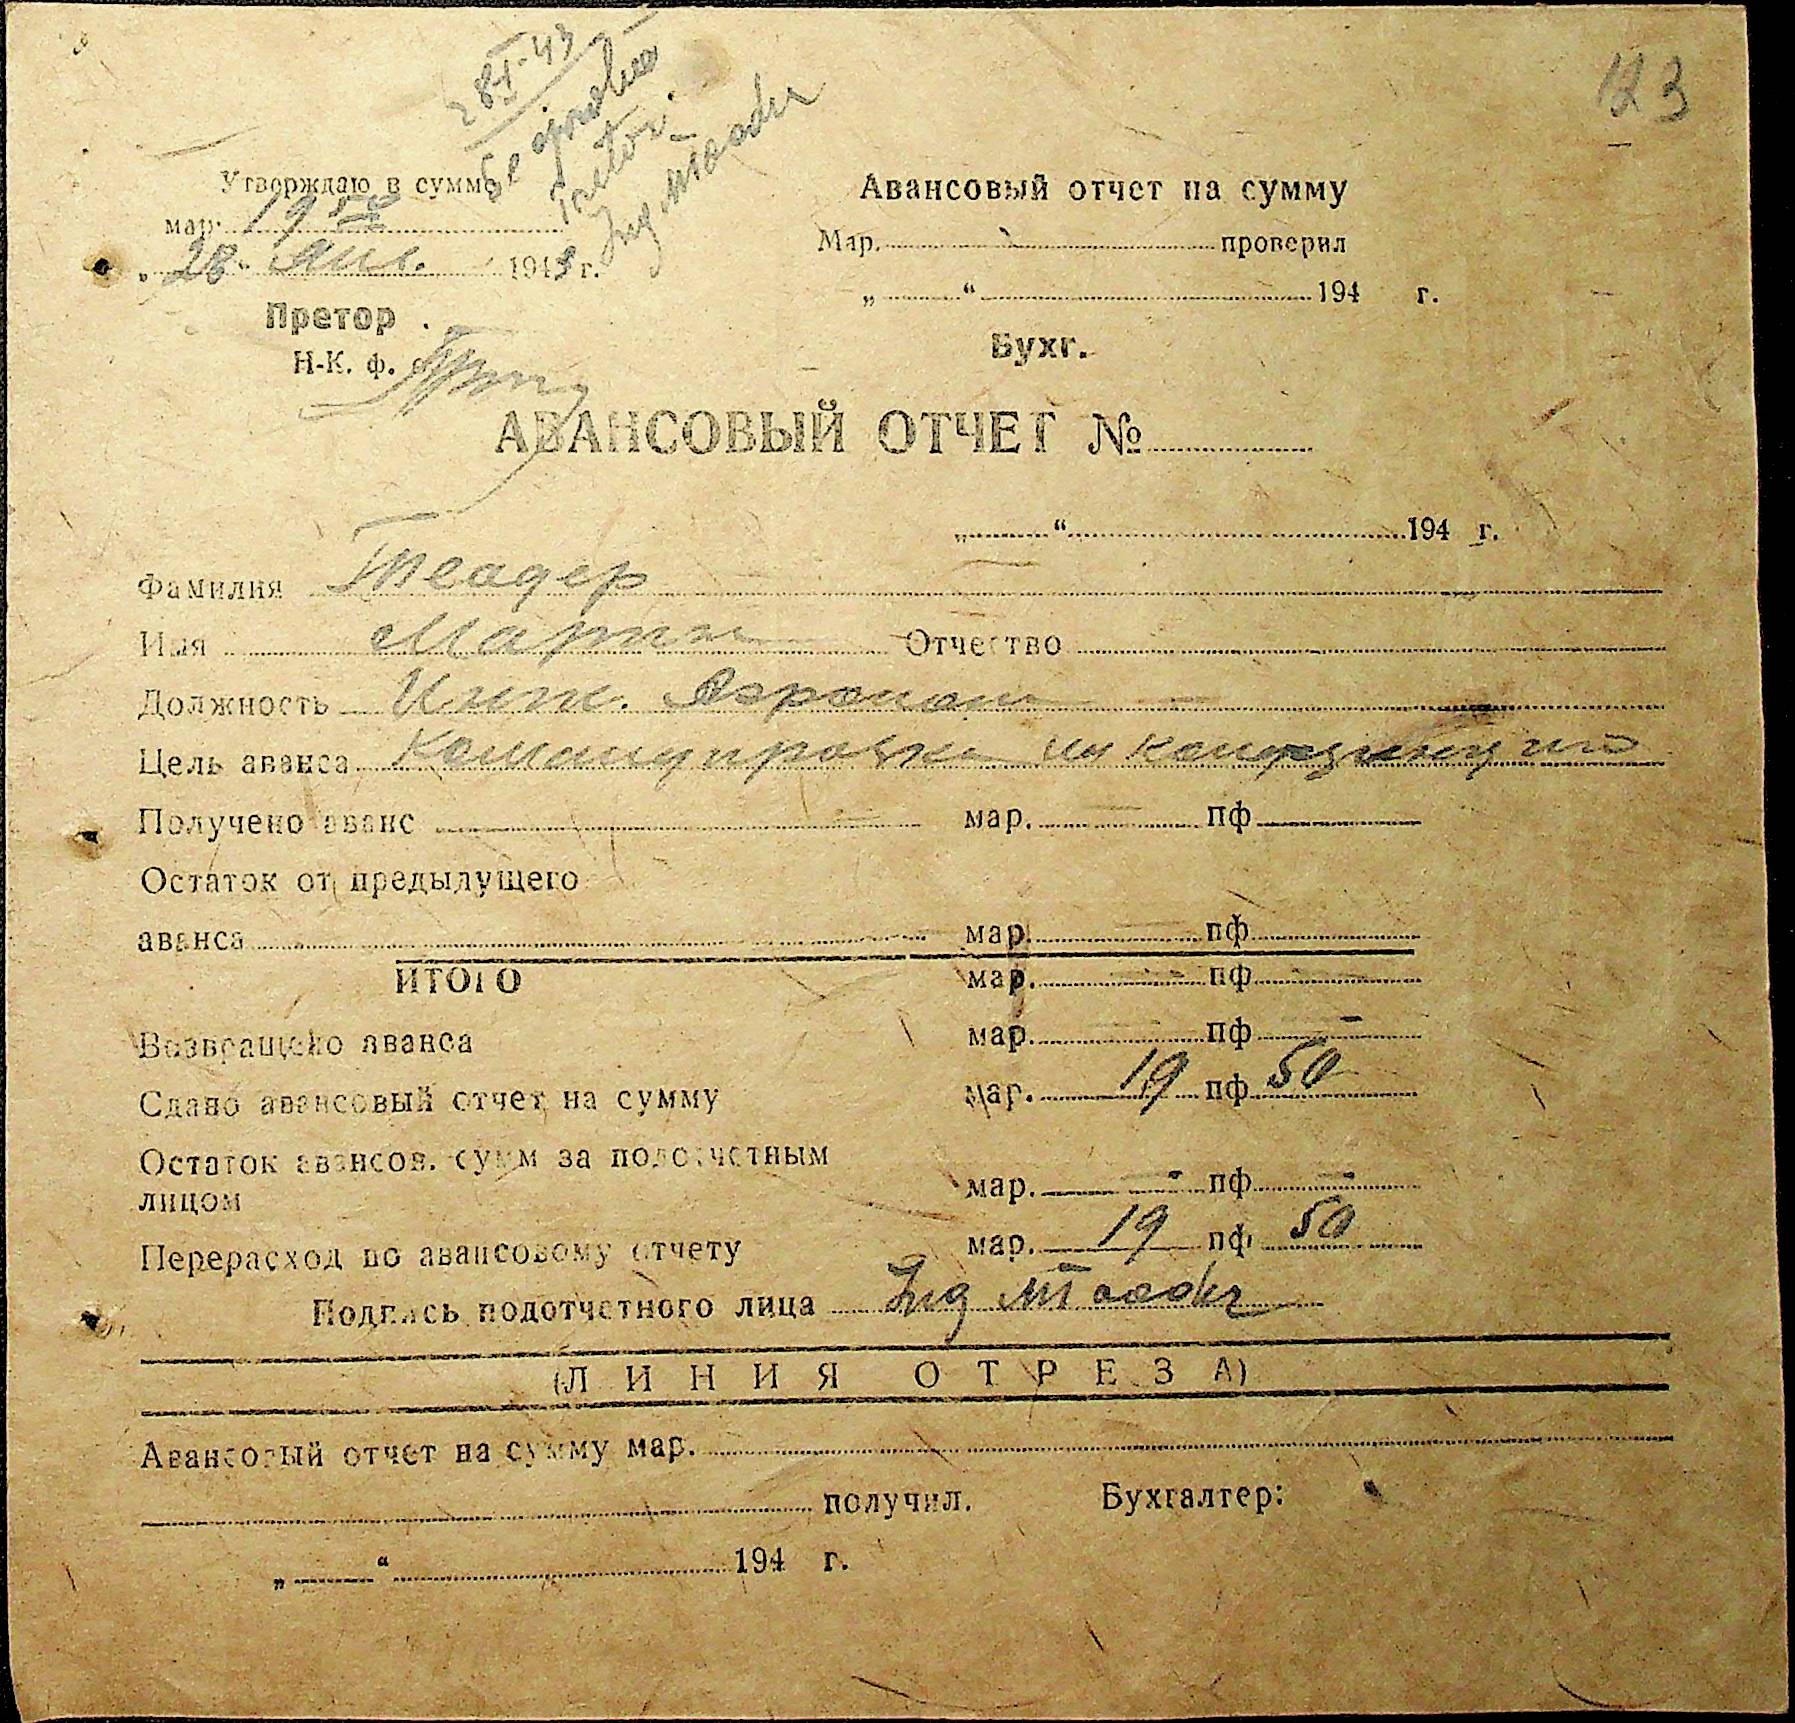 123
28 I 43
Se aprobă
Pretor
Ing MToader
Утверждаю в сумме
мар. 19 50
„28“ Янв. 1943 г.
Претор
Н-К. ф. о
Авансовый отчет на сумму
Мар. проверил
„ “ 194 г.
Бухг.
АВАНСОВЫЙ ОТЧЕТ №
„ “ 194 г.
Фамилия Тоадер
Имя Марин Отчество
Должность Инж. Агроном
Цель аванса Командировка на конференцию
Получено аванс мар. — пф.
Остаток от предыдущего
аванса мар. пф.
ИТОГО мар. — пф. —
Возвращено аванса мар. — пф. —
Сдано авансовый отчет на сумму мар. 19 пф. 50
Остаток авансов. сумм за подотчетным
лицом мар. — пф. —
Перерасход по авансовому отчету мар. 19 пф. 50
Подпись подотчетного лица Ing MToader
(ЛИНИЯ ОТРЕЗА)
Авансовый отчет на сумму мар.
получил. Бухгалтер:
„ “ 194 г.